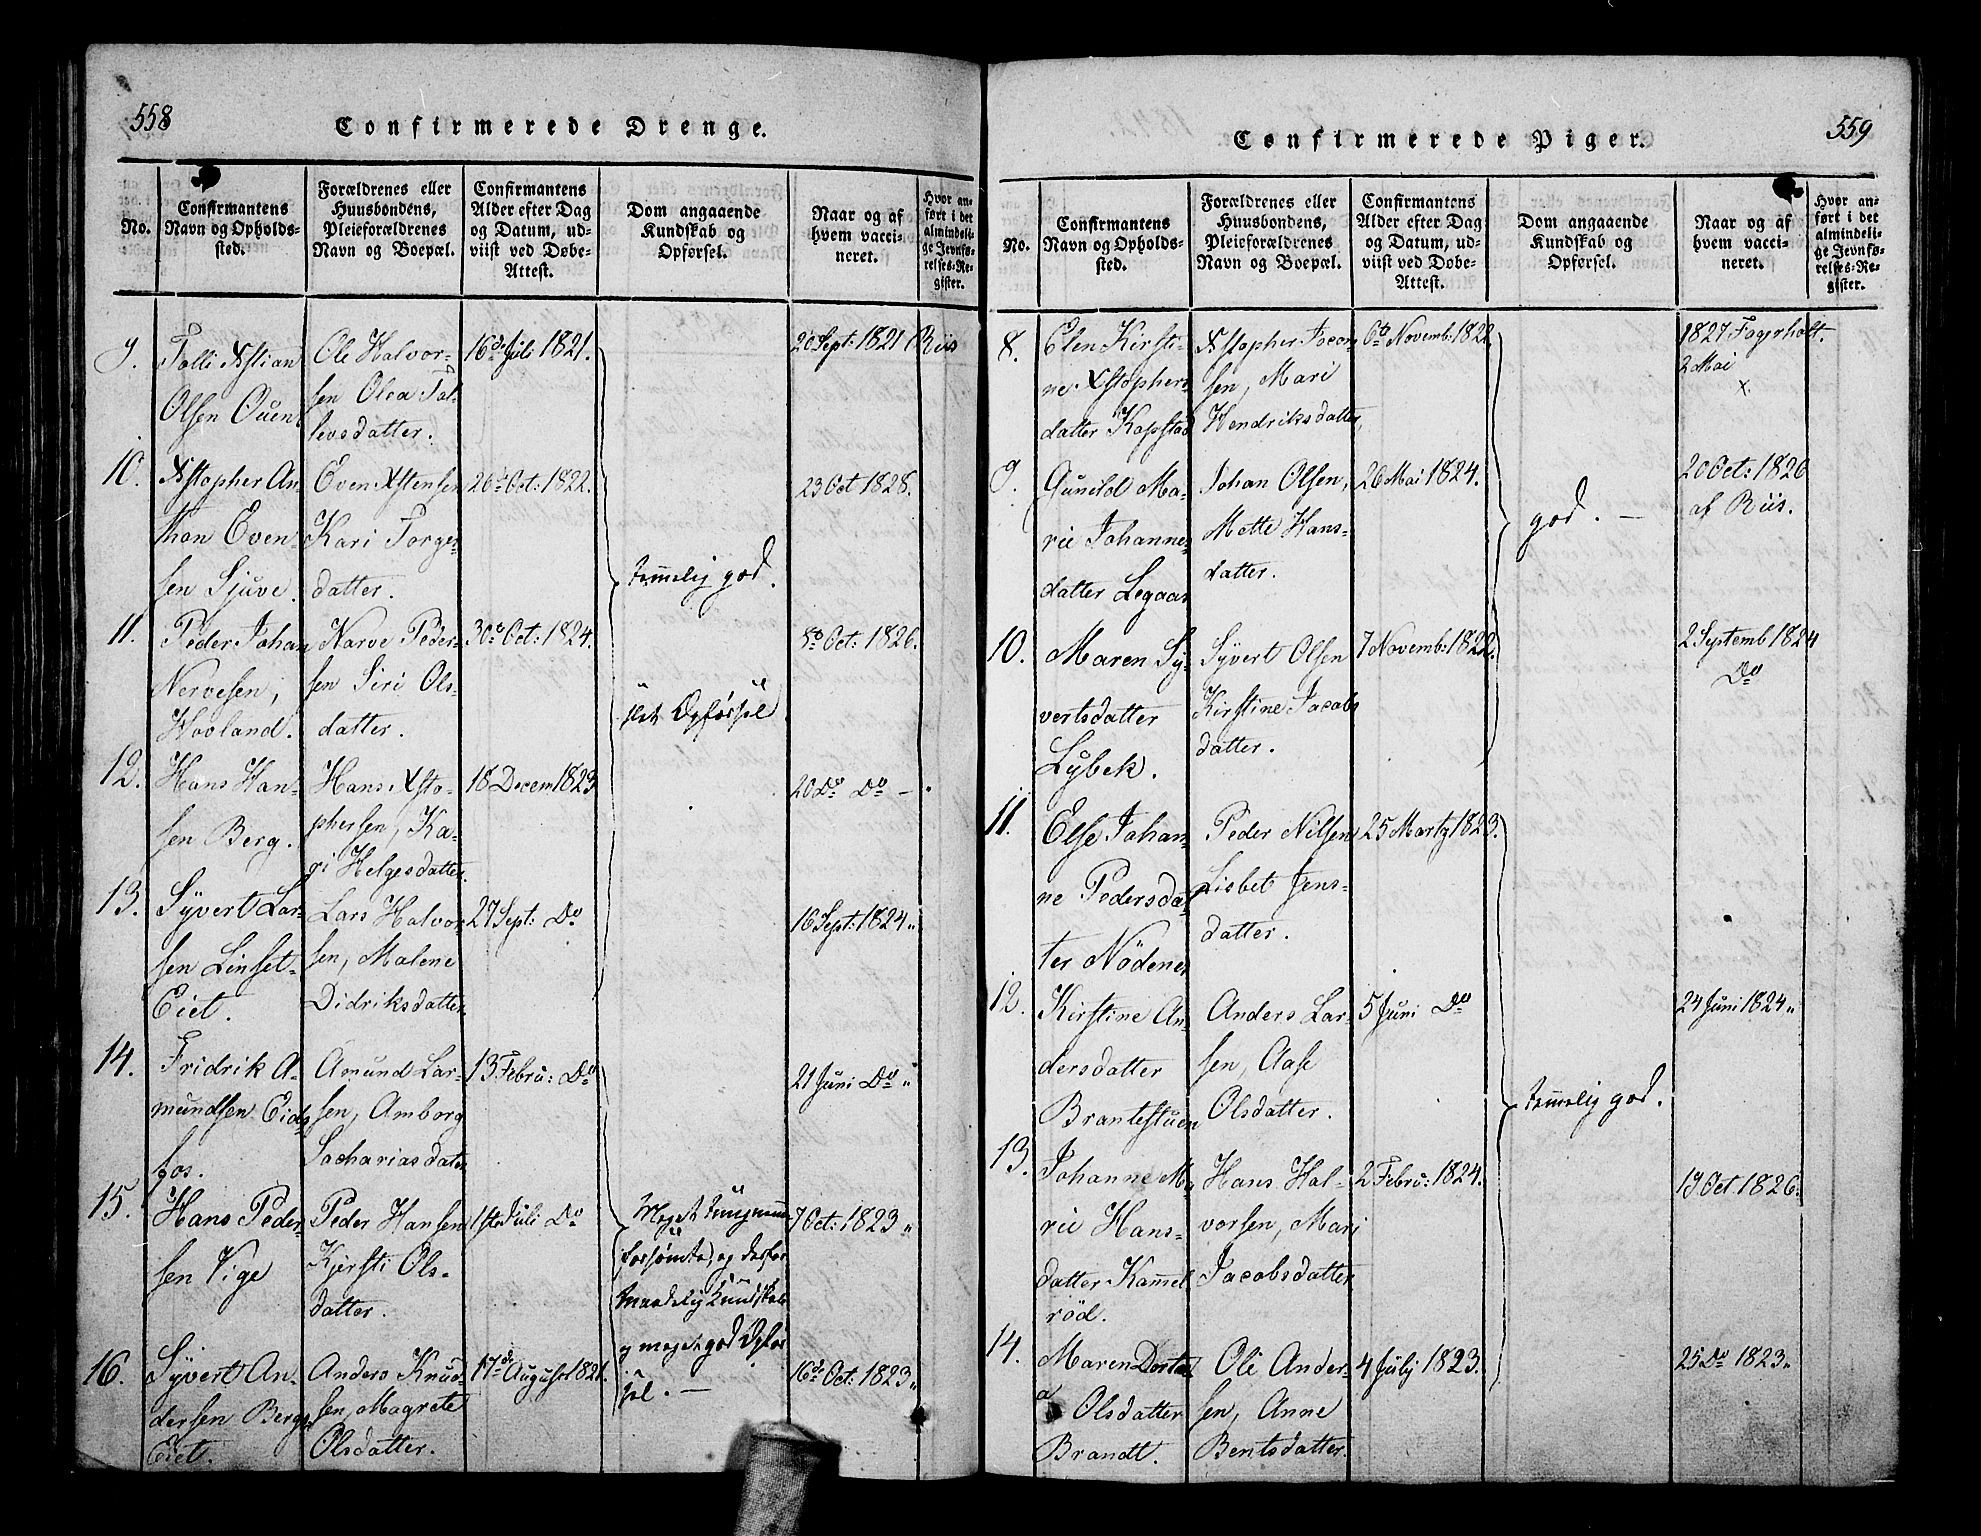 558
Confirmerede Drenge.
No.
Confirmantens
Navn og Opholds-
sted.
Forældrenes eller
Huusbondens,
Pleieforældrenes
Navn og Boepæl.
Confirmantens
Alder efter Dag
og Datum, ud-
viist ved Døbe-
Attest.
Dom angaaende
Kundskab og
Opførsel.
Naar og af
hvem vacci-
neret.
Hvor an-
ført i det
almindeli-
ge Jevnfø-
relses-Re-
gister.
9.
Tolli Xstian
Olsen Ouen
Ole Halvor-
sen Olea Tol-
levsdatter.
16de Juli 1821.
20 Sept: 1821 Riis
10.
Xstopher An-
thon Even-
sen Sjuve.
Even Xstensen
Kari Torges-
datter.
26 Oct: 1822.
23 Oct 1828.
temmelig god.
11.
Peder Johan
Nervesen,
Hovland.
Narve Peder-
sen Siri Ols-
datter.
30 Oct: 1824.
slet Opførsel
8 Oct: 1826.
12.
Hans Han-
sen Berg.
Hans Xsto-
phersen, Ka-
ri Helgesdatter.
18 Decem 1823
20 Do Do -
13.
Syvert Lar-
sen Linset-
Eiet.
Lars Halvor
sen, Malene
Didriksdatter.
27 Sept: Do
16 Sept: 1824 "
14.
Fridrik A-
mundsen Eids
fos.
Amund Lar-
sen, Amborg
Sacharias dater
13 Febru: Do
21 Juni Do "
15.
Hans Peder
sen Vige
Peder Hansen
Kjersti Ols-
datter.
1ste Juli Do
Meget
forsømte, og derfor
maadelig Kundskab
og meget god Opfør
sel. -
7 Oct: 1823 "
16.
Syvert An-
dersen Bergs
Eiet.
Anders Knud
sen, Magrete
Olsdatter.
17de August 1821.
16de Oct: 1823 "
559
Confirmerede Piger.
No.
Confirmantens
Navn og Opholds-
sted.
Forældrenes eller
Huusbondens,
Pleieforældrenes
Navn og Boepæl.
Confirmantens
Alder efter Dag
og Datum, ud-
viist ved Døbe-
Attest.
Dom angaaende
Kundskab og
Opførsel.
Naar og af
hvem vacci-
neret.
Hvor an-
ført i det
almindeli-
ge Jevnfø-
relses-Re-
gister.
8.
Elen Kirsti-
ne Xstophers
datter Kopstad
Xstopher Jacob
sen, Mari
Hendriksdatter,
6te Novemb: 1822.
1827 Fagerholt.
2 Mai
x
9.
Gunild Ma-
rie Johannes
datter Legaar
Johan Olsen,
Mette Hans-
datter.
26 Mai 1824.
god. -
20 Oct: 1826
af Riis.
10.
Maren Sy-
vertsdatter
Lybek.
Syvert Olsen
Kirstine Jacobs
datter.
7 Novemb: 1822.
2 Septemb 1824
Do
11.
Else Johan-
ne Pedersdat
ter Nødenes
Peder Nilsen
Lisbet Jens-
datter.
25 Martz 1823.
12.
Kirstine An-
dersdatter
Brantestuen
Anders Lar-
sen, Aase
Olsdatter.
5 Juni Do
24 Juni 1824 "
temmelig god.
13.
Johanne Ma
rie Hans-
datter Kammel
rød.
Hans Hal-
vorsen, Mari
Jacobsdatter
2 Febru: 1824.
19 Oct: 1826.
14.
Maren Dorte
a Olsdatter
Brandt.
Ole Ander-
sen, Anne
Bentsdatter.
4 July 1823.
25 Do 1823 "